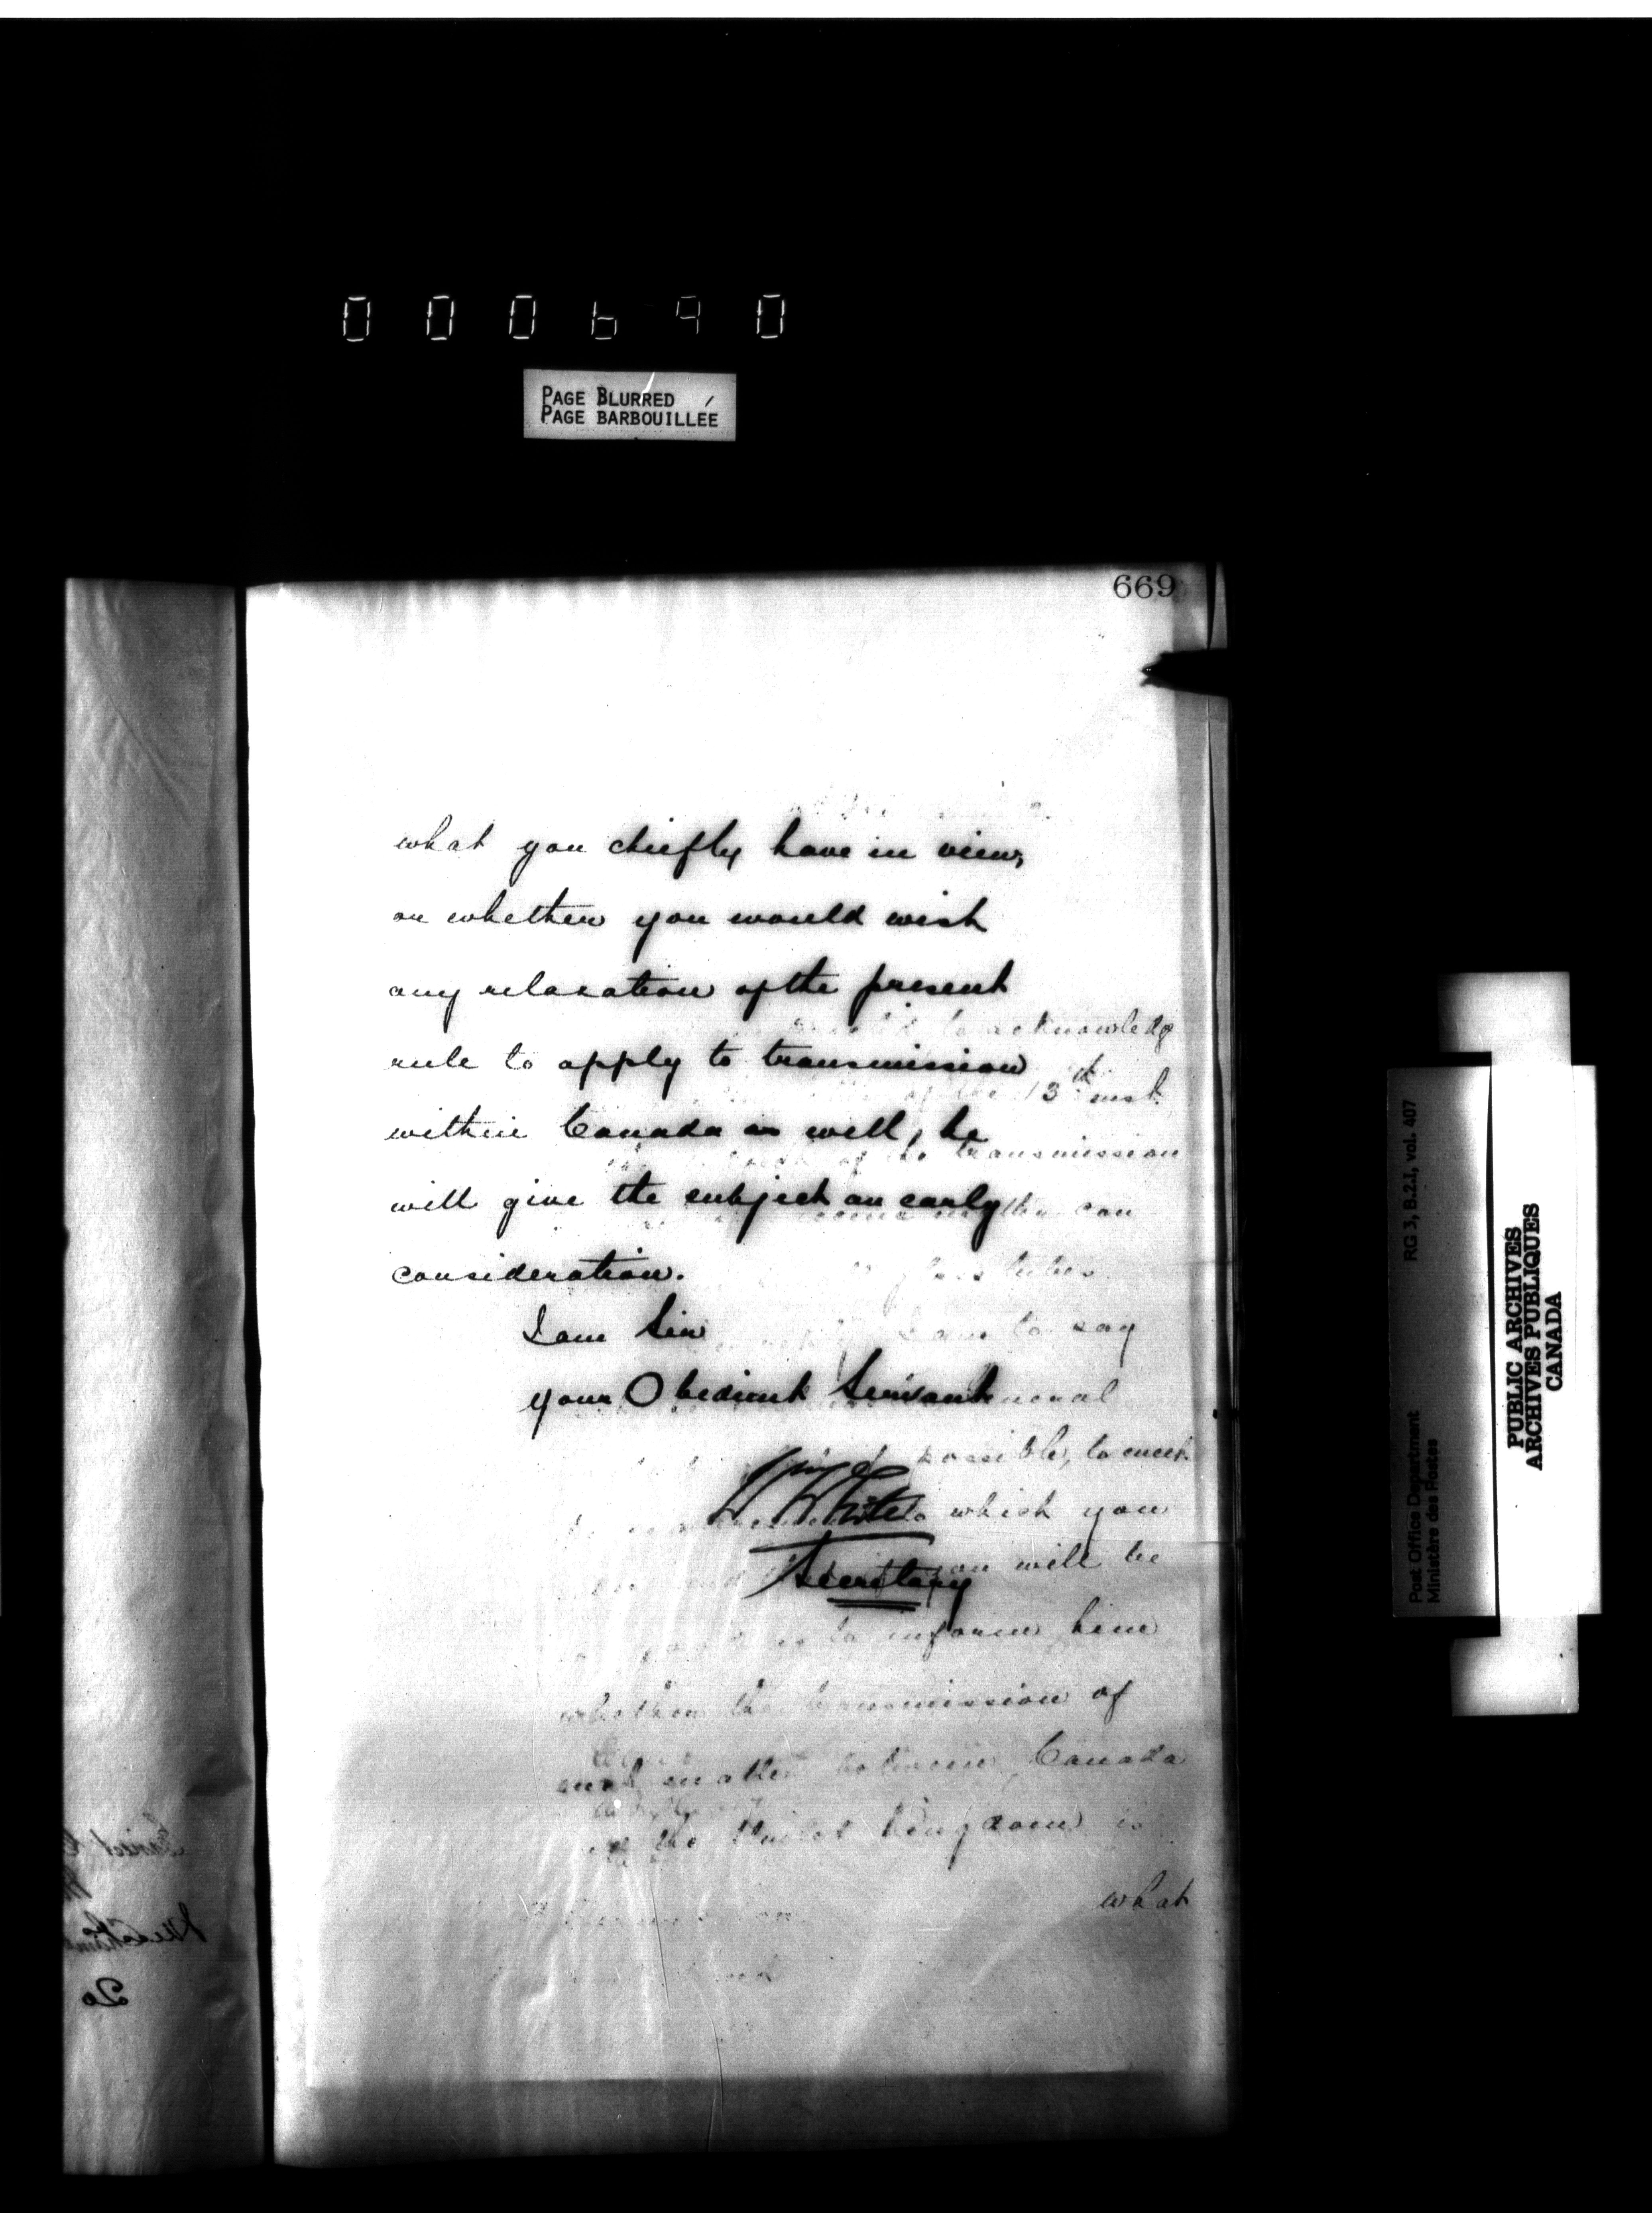 000690
PAGE BLURRED
PAGE BARBOUILLÉE
669
what you chiefly have in view,
or whether you would wish
any relaxation of the present
rule to apply to transmission
within Canada as well, he
will give the subject an early
consideration.
I am Sir
your Obedient Servant
W. White
Secretary
to acknowledge
of the 13th inst.
of the transmission
can
glass tubes
I am to say
possible, to meet
which you
will be
to inform him
whether the transmission of
such matter between Canada
the United Kingdom is
what
20
Post Office Department
Ministère des Postes
RG 3, B.2.1, vol. 407
PUBLIC ARCHIVES
ARCHIVES PUBLIQUES
CANADA